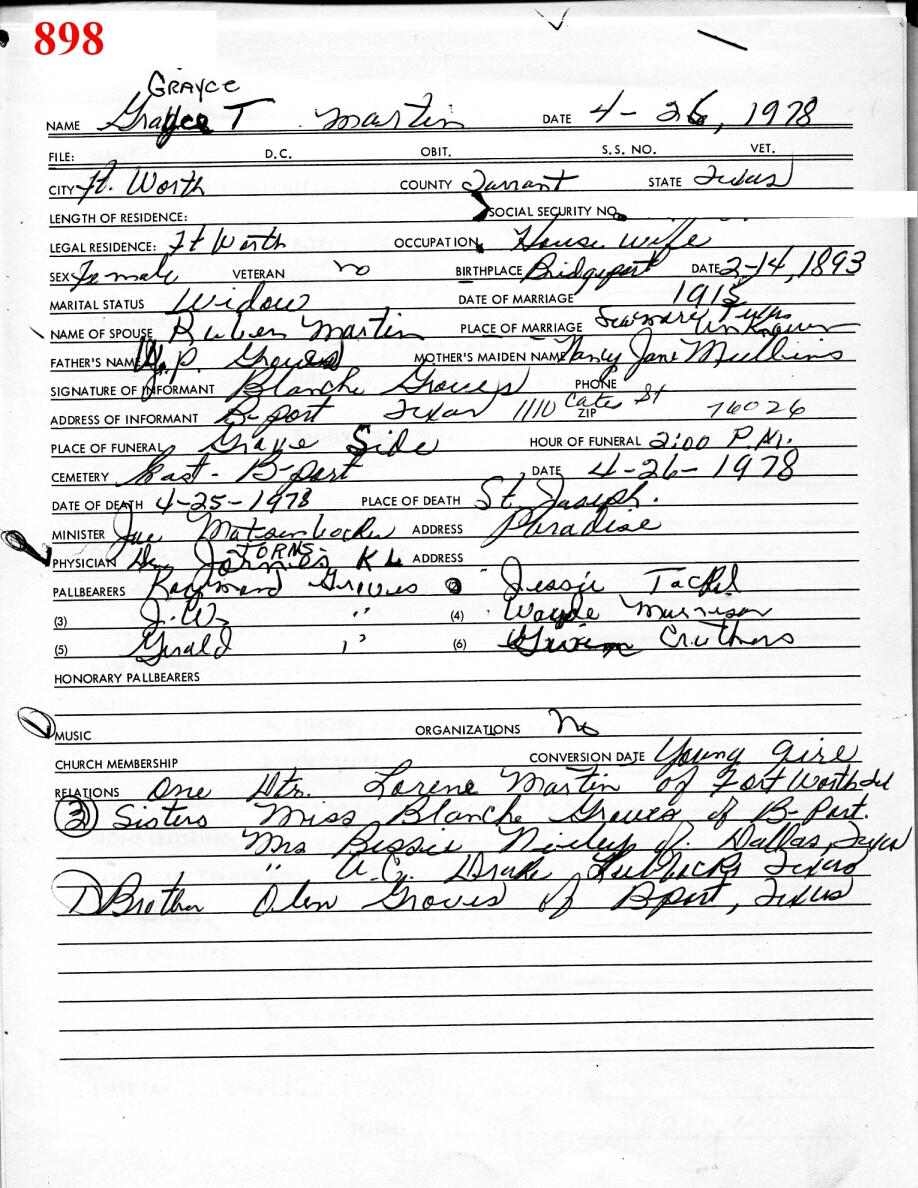 898
GRAYCE
NAME Grayce T Martin DATE 4-26, 1978
FILE: D.C. OBIT. S.S. NO. VET.
CITY Ft. Worth COUNTY Tarrant STATE Texas
LENGTH OF RESIDENCE: SOCIAL SECURITY NO.
LEGAL RESIDENCE: Ft Worth OCCUPATION House wife
SEX Female VETERAN no BIRTHPLACE Bridgeport DATE 2-14, 1893
MARITAL STATUS Widow DATE OF MARRIAGE 1915
NAME OF SPOUSE Ruben Martin PLACE OF MARRIAGE Unknown
FATHER'S NAME P. Groves MOTHER'S MAIDEN NAME Nancy Jane Mullins
SIGNATURE OF INFORMANT Blanche Groves PHONE
ADDRESS OF INFORMANT B-port Texas 1110 Cates St ZIP 76026
PLACE OF FUNERAL Grave Side HOUR OF FUNERAL 2:00 P.M.
CEMETERY East - B-port DATE 4-26-1978
DATE OF DEATH 4-25-1978 PLACE OF DEATH St. Joseph.
MINISTER Joe ADDRESS Paradise
PHYSICIAN Dr. JORNS ADDRESS
PALLBEARERS Raymond Groves (2) Jessie Tackel
(3) J.W. " (4) Wayde Murrison
(5) Gerald " (6) Cruthers
HONORARY PALLBEARERS
MUSIC ORGANIZATIONS No
CHURCH MEMBERSHIP CONVERSION DATE Young Girl
RELATIONS One Dtr. Lorene Martin of Fort Worth
3 Sisters Miss Blanche Groves of B-Port.
Mrs Bessie of Dallas, Texas
" A.C. Drake Lubbock, Texas
1 Brother Olen Groves of Bport, Texas